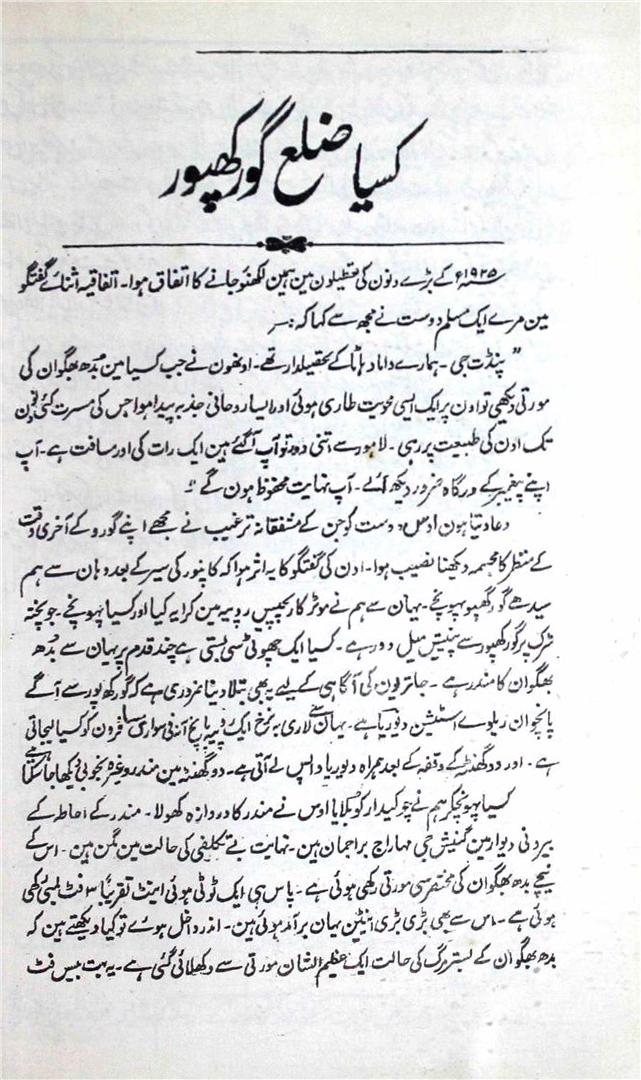 کسیا ضلع گورکھپور
۱۹۲۵ء کے بڑے دنون کی تعطیلون مین ہمین لکھنؤ جانے کا اتفاق ہوا۔ اتفاقیہ اثنائے گفتگو
مین مرے ایک مسلم دوست نے مجھ سے کہا کہ:۔
" پنڈت جی۔ ہمارے داماد وہانکے تحصیلدار تھے۔ اونھون نے جب کسیا مین بُدھ بھگوان کی
مورتی دیکھی تو اون پر ایک ایسی محویت طاری ہوئی اور ایسا روحانی جذبہ پیدا ہوا جس کی مسرت کئی دن
تک اون کی طبیعت پر رہی۔ لاہور سے اتنی دور تو آپ آگئے ہین ایک رات کی اور مسافت ہے۔ آپ
اپنے پیغمبر کے درگاہ ضرور دیکھ آئے۔ آپ نہایت محظوظ ہون گے"
دعا دیتا ہون اوس دوست کو جن کے مشفقانہ ترغیب نے مجھے اپنے گورو کے آخری وقت
کے منظر کا مجسمہ دیکھنا نصیب ہوا۔ اون کی گفتگو کا یہ اثر ہوا کہ کانپور کی سیر کے بعد وہان سے ہم
سیدھے گورکھپور پہونچے۔ یہان سے ہم نے موٹر کار پچیس روپیہ مین کرایہ کیا اور کسیا پہونچے۔ جو پختہ
سڑک پر گورکھپور سے سینتیس میل دور ہے۔ کسیا ایک چھوٹی سی بستی ہے چند قدم پر یہان سے بُدھ
بھگوان کا مندر ہے۔ جاتریون کی آگاہی کے لیے یہ بھی بتلا دینا ضروری ہے کہ گورکھپور سے آگے
پانچوان ریلوے اسٹیشن دیوریا ہے۔ یہان سے لاری بہ نرخ ایک روپیہ پانچ آنہ فی سواری مسافرون کو کسیا لیجاتی
ہے۔ اور دو گھنٹہ کے وقفہ کے بعد ہمراہ دیوریا واپس لے آتی ہے۔ دو گھنٹہ مین مندر وغیرہ بخوبی دیکھا جا سکتا ہے
کسیا پہونچکر ہم نے چوکیدار کو بلایا اوس نے مندر کا دروازہ کھولا۔ مندر کے احاطہ کے
بیرونی دیوار مین گنیش جی مہاراج براجمان ہین۔ نہایت بے تکلفی کی حالت مین مگن ہین۔ اس کے
نیچے بدھ بھگوان کی مختصر سی مورتی رکھی ہوئی ہے۔ پاس ہی ایک ٹوٹی ہوئی اینٹ تقریباً ۳ فٹ لمبی رکھی
ہوئی ہے۔ اس سے بھی بڑی بڑی انٹین یہان برآمد ہوئی ہین۔ اندر داخل ہوے تو کیا دیکھتے ہین کہ
بدھ بھگوان کے بستر مرگ کی حالت ایک عظیم الشان مورتی سے دکھلائی گئی ہے۔ یہ بت بیس فٹ